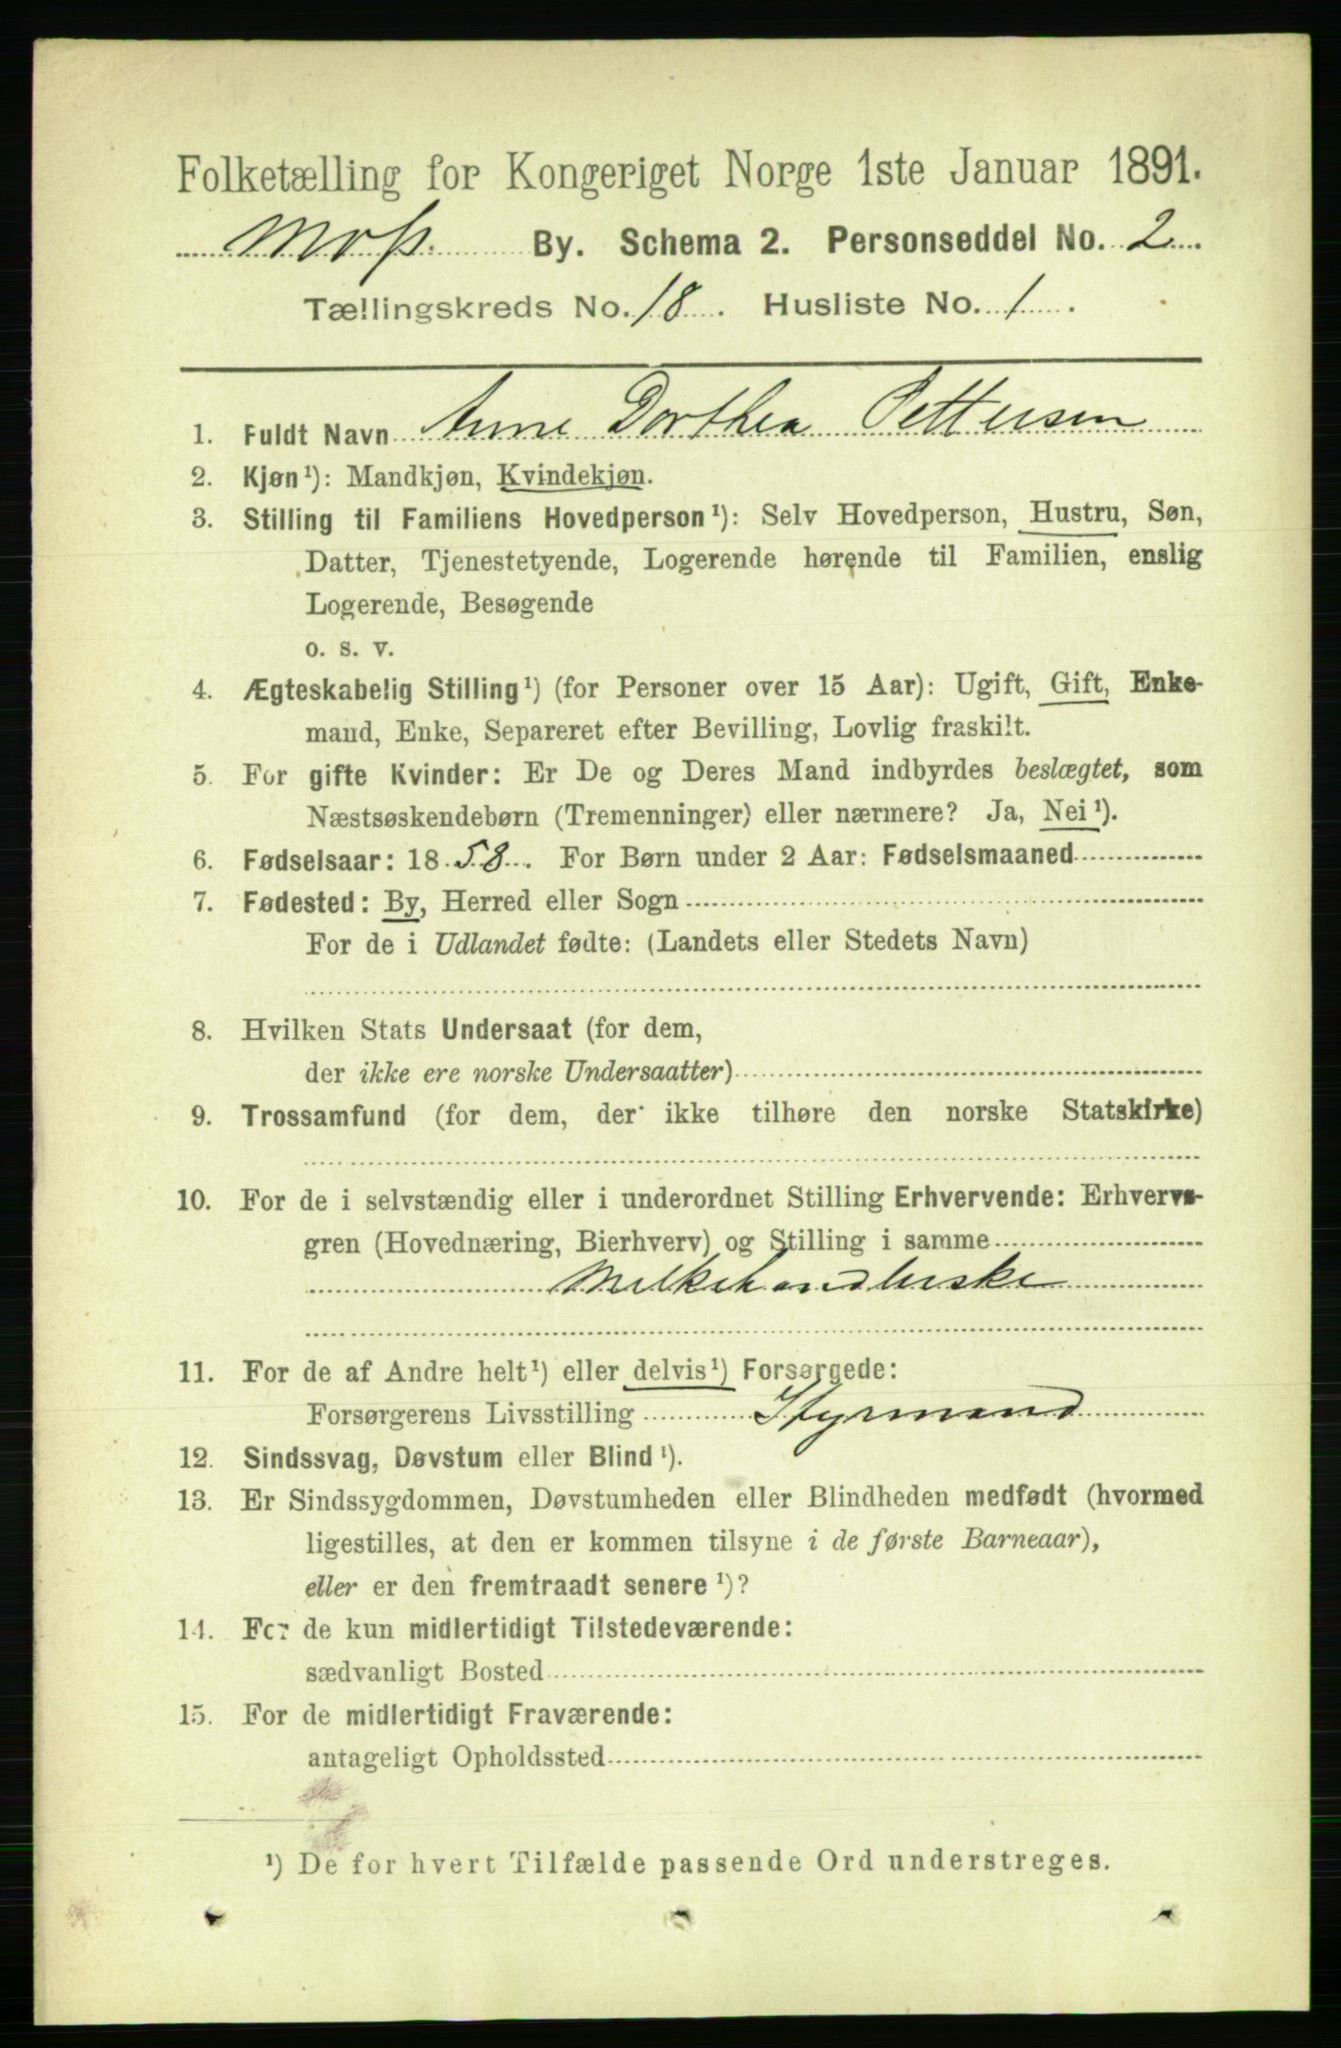 Folketælling for Kongeriget Norge 1ste Januar 1891.
Moss By. Schema 2. Personseddel No. 2
Tællingskreds No. 18. Husliste No. 1.
1. Fuldt Navn Anne Dorthea Pettersen
2. Kjøn¹): Mandkjøn, Kvindekjøn.
3. Stilling til Familiens Hovedperson¹): Selv Hovedperson, Hustru, Søn,
Datter, Tjenestetyende, Logerende hørende til Familien, enslig
Logerende, Besøgende
o. s. v.
4. Ægteskabelig Stilling¹) (for Personer over 15 Aar): Ugift, Gift, Enke-
mand, Enke, Separeret efter Bevilling, Lovlig fraskilt.
5. For gifte Kvinder: Er De og Deres Mand indbyrdes beslægtet, som
Næstsøskendebørn (Tremenninger) eller nærmere? Ja, Nei¹).
6. Fødselsaar: 1858. For Børn under 2 Aar: Fødselsmaaned
7. Fødested: By, Herred eller Sogn
For de i Udlandet fødte: (Landets eller Stedets Navn)
8. Hvilken Stats Undersaat (for dem,
der ikke ere norske Undersaatter)
9. Trossamfund (for dem, der ikke tilhøre den norske Statskirke)
10. For de i selvstændig eller i underordnet Stilling Erhvervende: Erhvervs-
gren (Hovednæring, Bierhverv) og Stilling i samme
Melkehandlerske
11. For de af Andre helt¹) eller delvis¹) Forsørgede:
Forsørgerens Livsstilling Styrmand
12. Sindssvag, Døvstum eller Blind¹).
13. Er Sindssygdommen, Døvstumheden eller Blindheden medfødt (hvormed
ligestilles, at den er kommen tilsyne i de første Barneaar),
eller er den fremtraadt senere¹)?
14. For de kun midlertidigt Tilstedeværende:
sædvanligt Bosted
15. For de midlertidigt Fraværende:
antageligt Opholdssted
¹) De for hvert Tilfælde passende Ord understreges.